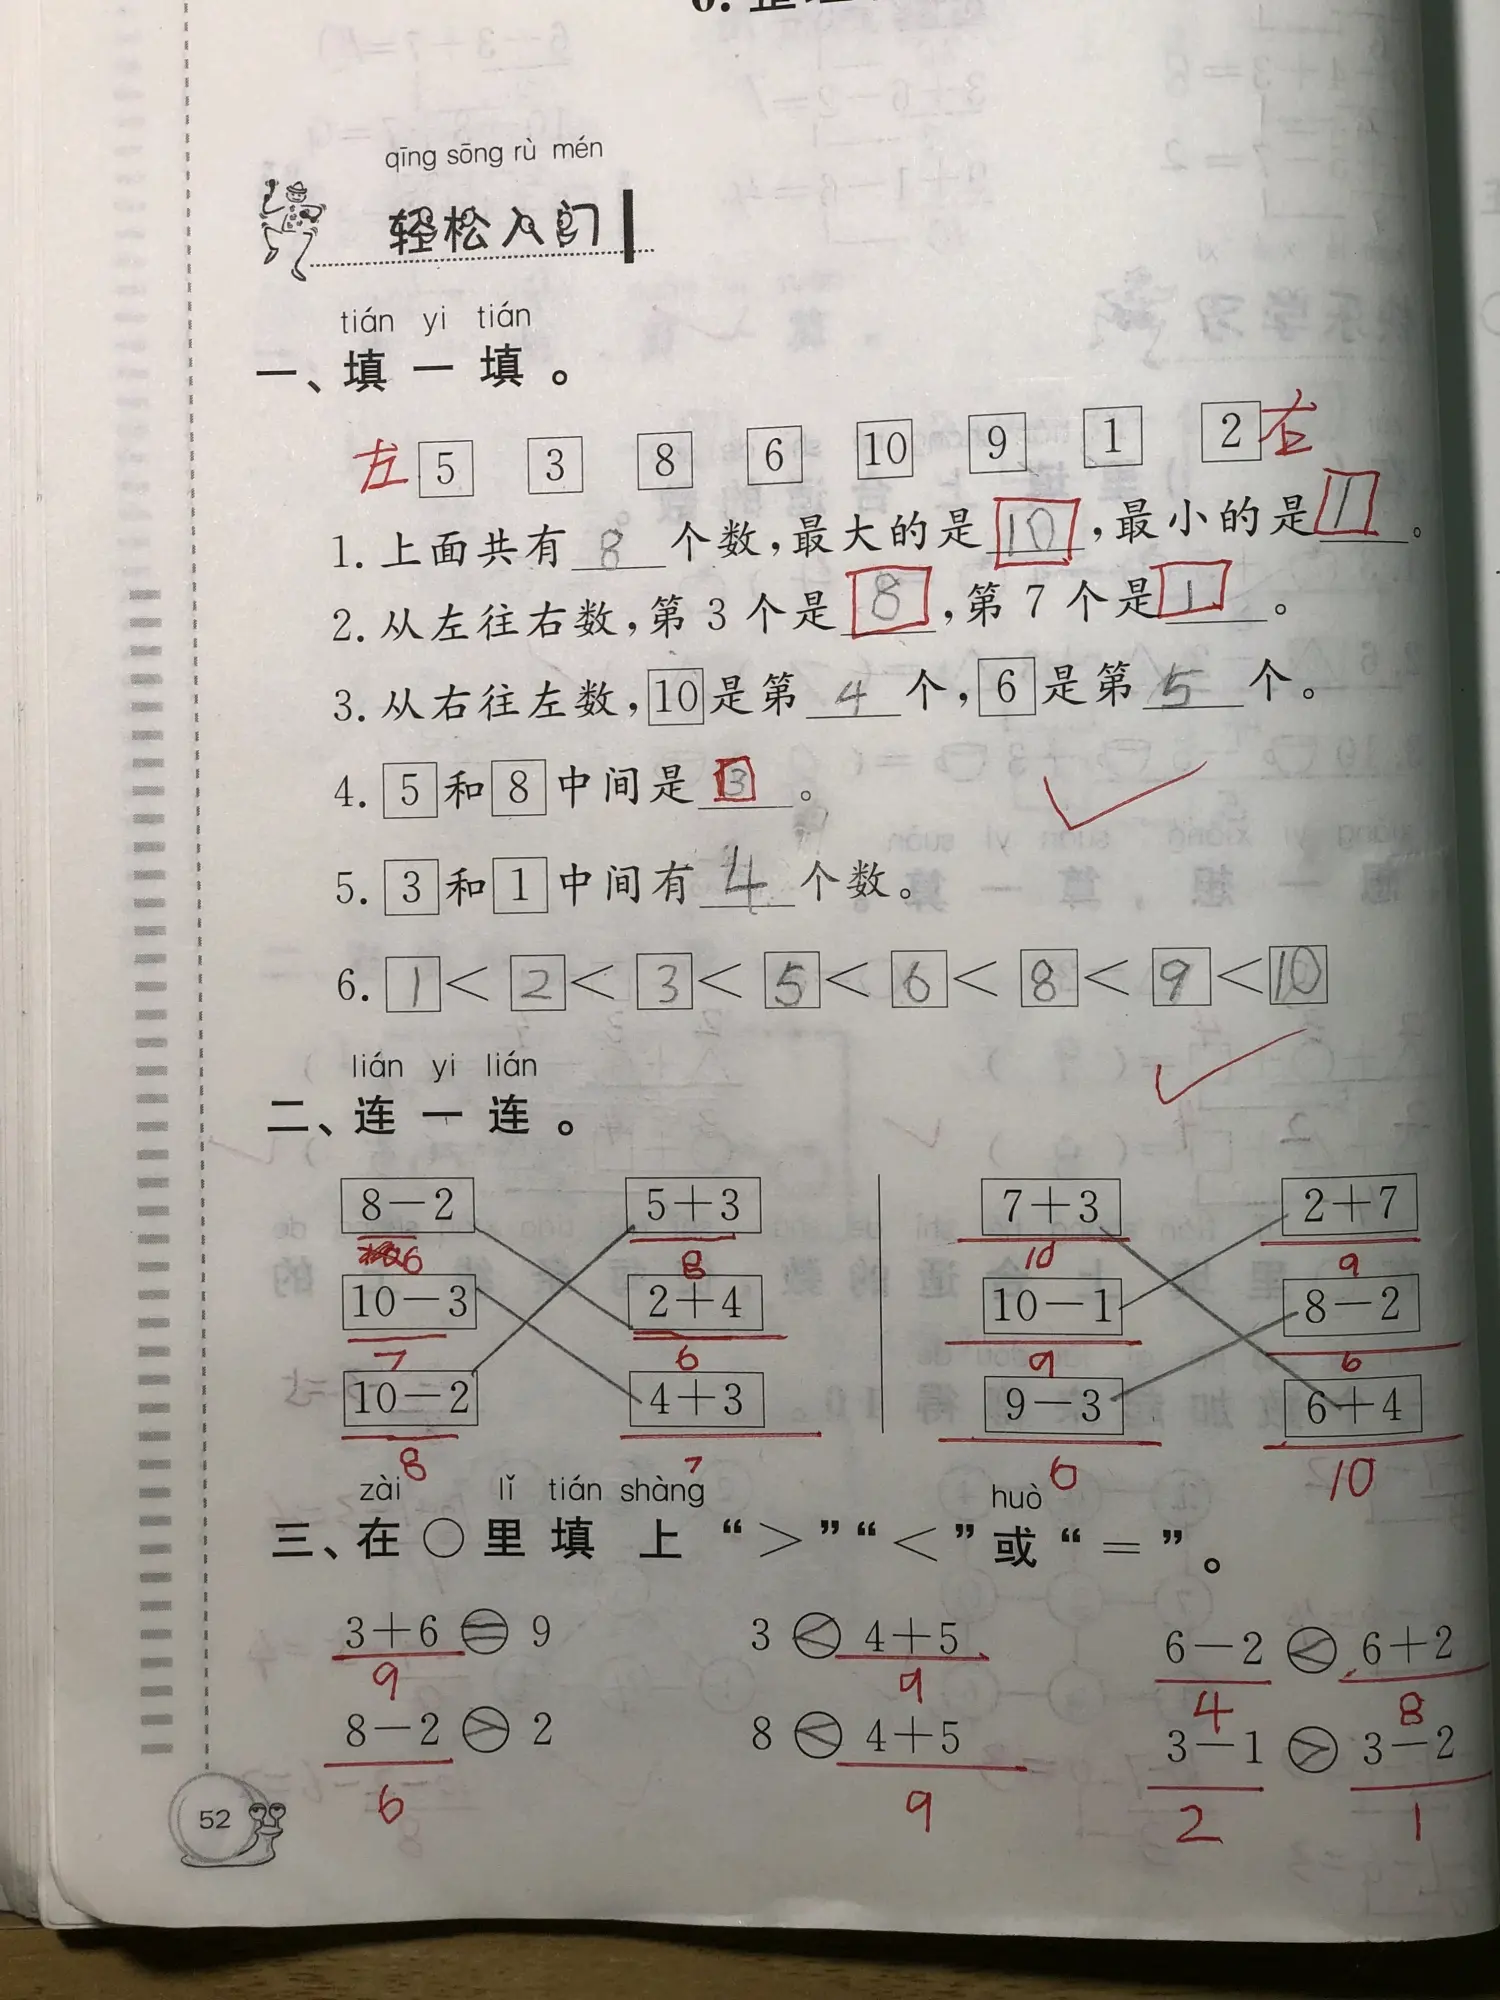 qīng sōng rù mén
轻松入门
tián yi tián
一、填一填。
左 5 3 8 6 10 9 1 2 右
1. 上面共有 8 个数,最大的是 10 ,最小的是 1 。
2. 从左往右数,第 3 个是 8 ,第 7 个是 1 。
3. 从右往左数, 10 是第 4 个, 6 是第 5 个。
4. 5 和 8 中间是 3 。
5. 3 和 1 中间有 4 个数。
6. 1 < 2 < 3 < 5 < 6 < 8 < 9 < 10
lián yi lián
二、连一连。
8-2 5+3 7+3 2+7
6 8 10 9
10-3 2+4 10-1 8-2
7 6 9 6
10-2 4+3 9-3 6+4
8 7 6 10
zài lǐ tián shàng huò
三、在○里填上“>”“<”或“=”。
3+6 = 9 3 < 4+5 6-2 < 6+2
9 9 4 8
8-2 > 2 8 < 4+5 3-1 > 3-2
6 9 2 1
52